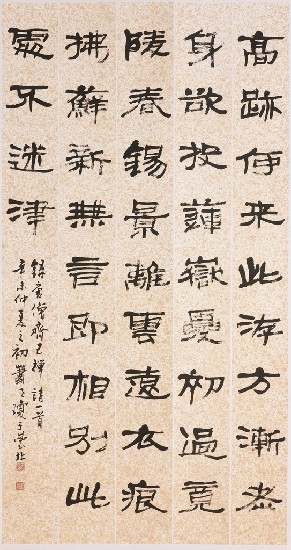 高跡何来此游方漸老
身欲投蓮嶽夏初過竟
陵春錫景離雲遠衣痕
拂蘚新無言即相別此
處不迷津
錄唐僧齊己禪詩一首
辛未仲夏之初蕭瓊于北